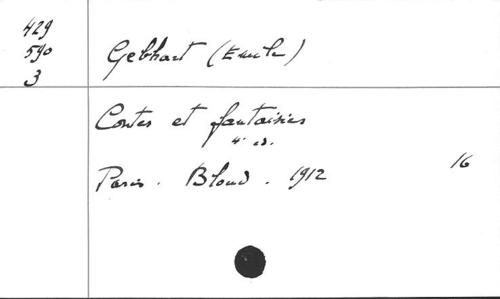 429
590
3
Gebhart (Emile)
Contes et fantaisies
4e ed.
Paris. Bloud. 1912
16